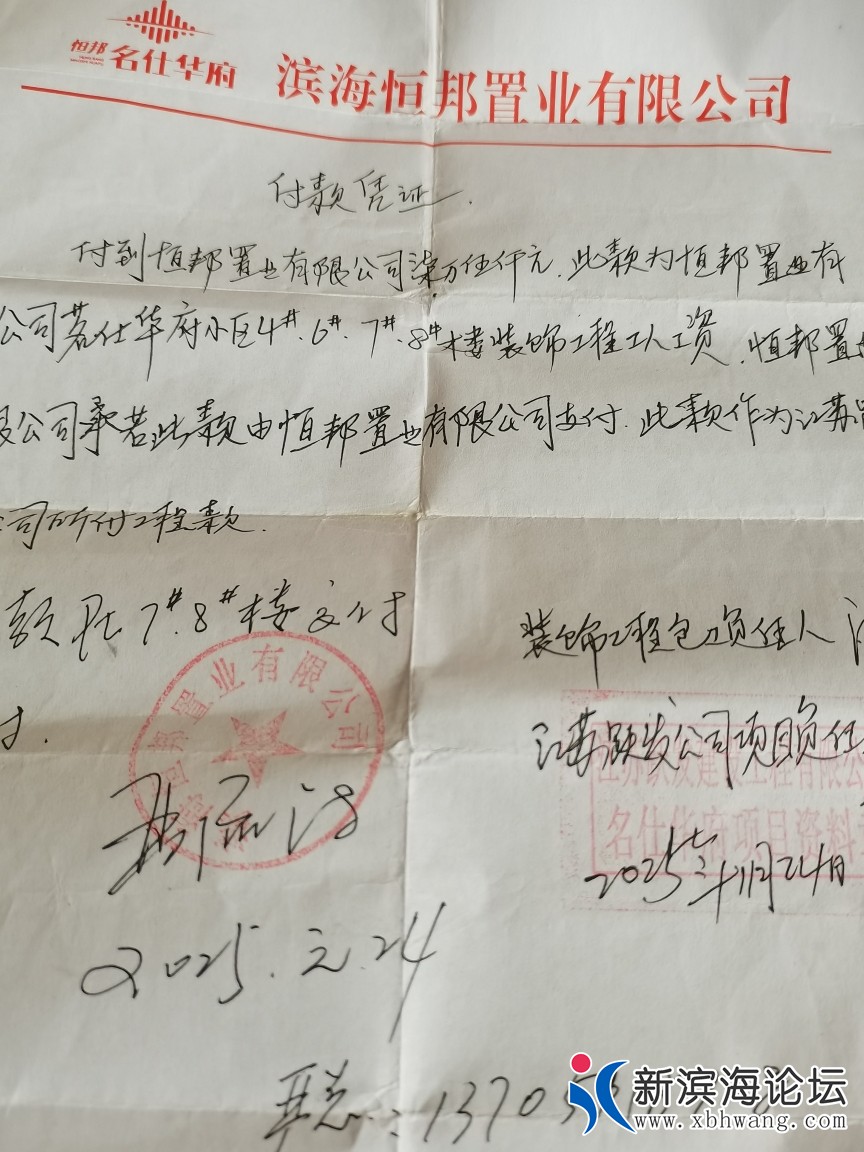 恒邦
名仕华府
滨海恒邦置业有限公司
付款凭证.
付到恒邦置业有限公司柒万伍仟元.此款为恒邦置业有
公司茗仕华府小区4#.6#.7#.8#楼装饰工程工人工资.恒邦置业
限公司承若此款由恒邦置业有限公司支付.此款作为江苏
司所付工程款.
款在7#.8#楼交付
付.
装饰工程包负责任人
恒邦置业有限公司
江苏跃发公司项目负任
江苏跃发建工程有限公
名仕华府项目资料
2025年月24日
2025.元.24
13705
新滨海论坛
www.xbhwang.com